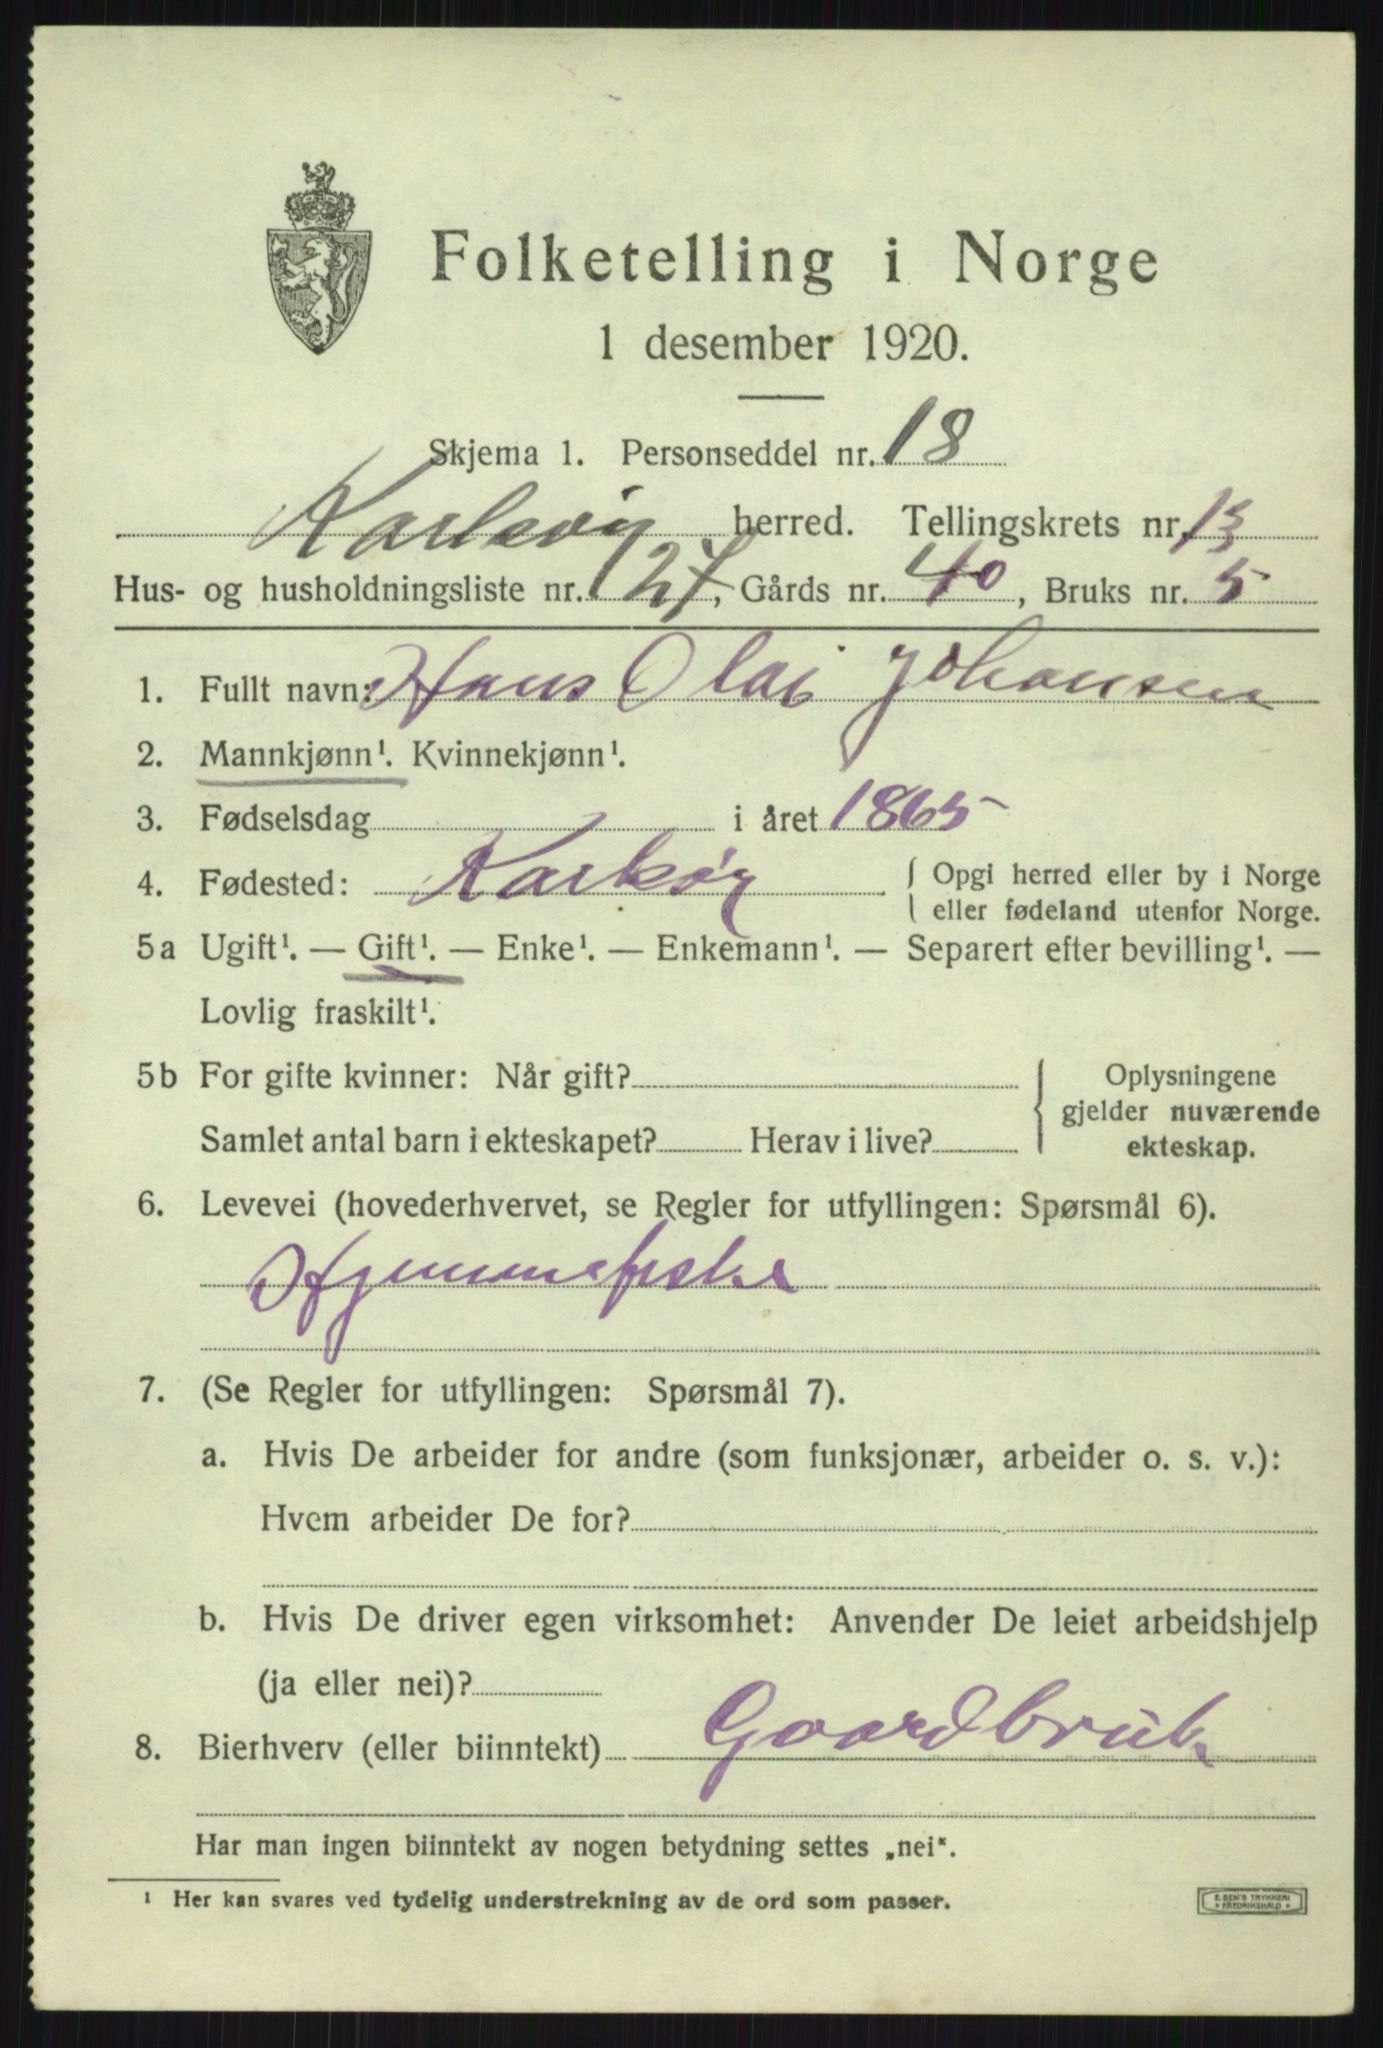 Folketelling i Norge
1 desember 1920.
Skjema 1. Personseddel nr. 18
Karlsøy herred. Tellingskrets nr. 13
Hus- og husholdningsliste nr. 127, Gårds nr. 40, Bruks nr. 5
1. Fullt navn: Hans Olai Johansen
2. Mannkjønn¹. Kvinnekjønn¹.
3. Fødselsdag i året 1865
4. Fødested: Karlsøy { Opgi herred eller by i Norge
eller fødeland utenfor Norge.
5a Ugift¹. — Gift¹. — Enke¹. — Enkemann¹. — Separert efter bevilling¹. —
Lovlig fraskilt¹.
5b For gifte kvinner: Når gift? { Oplysningene
gjelder nuværende
Samlet antal barn i ekteskapet? Herav i live? ekteskap.
6. Levevei (hovederhvervet, se Regler for utfyllingen: Spørsmål 6).
Hjemmefiske
7. (Se Regler for utfyllingen: Spørsmål 7).
a. Hvis De arbeider for andre (som funksjonær, arbeider o. s. v.):
Hvem arbeider De for?
b. Hvis De driver egen virksomhet: Anvender De leiet arbeidshjelp
(ja eller nei)?
8. Bierhverv (eller biinntekt) Gaardbruk
Har man ingen biinntekt av nogen betydning settes „nei“.
¹ Her kan svares ved tydelig understrekning av de ord som passer.
E. SEM'S TRYKKERI
FREDRIKSHALD